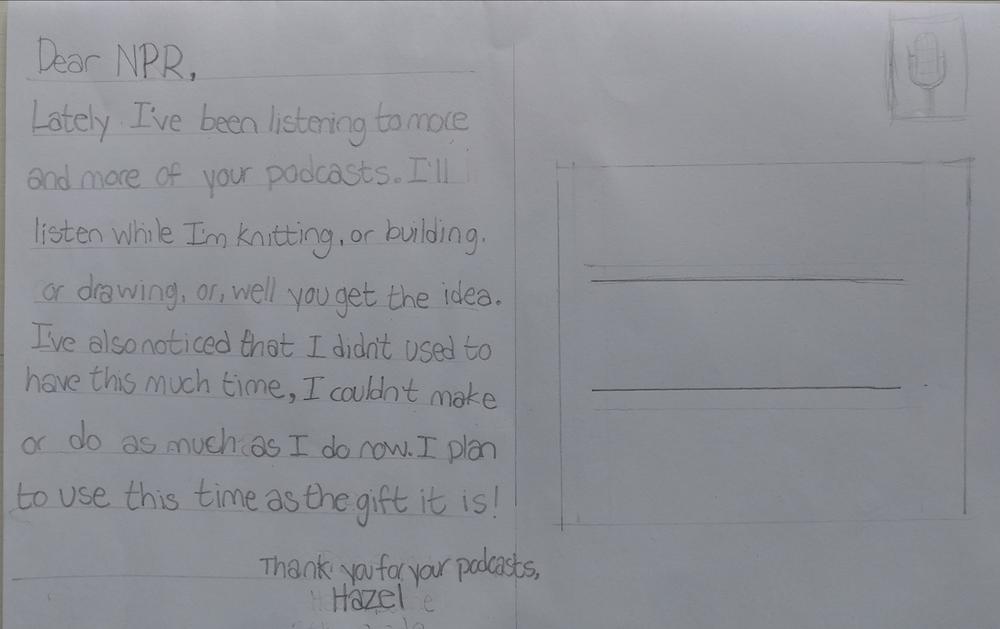 Dear NPR,
Lately I've been listening to more
and more of your podcasts. I'll
listen while I'm knitting, or building,
or drawing, or, well you get the idea.
I've also noticed that I didn't used to
have this much time, I couldn't make
or do as much as I do now. I plan
to use this time as the gift it is!
Thank you for your podcasts,
Hazel